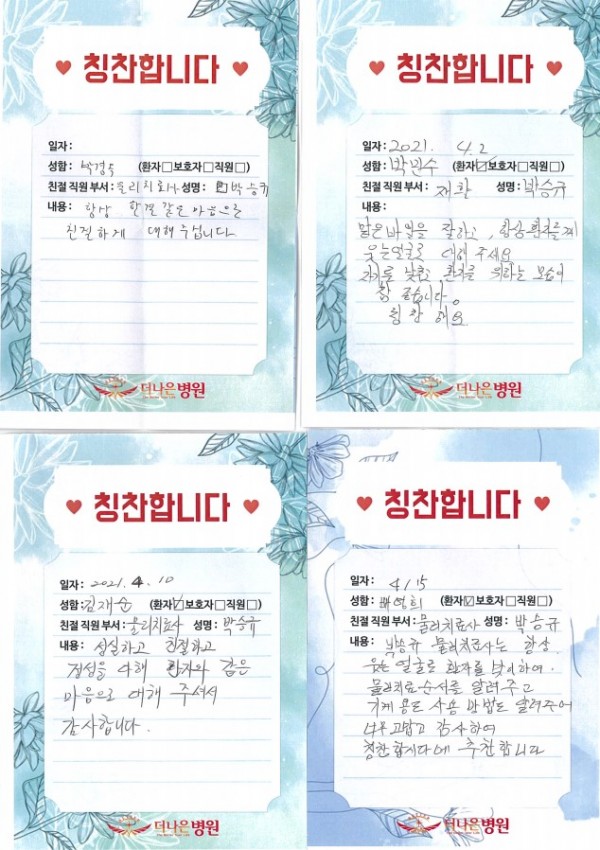 칭찬합니다
일자:
성함: 박경숙 (환자□보호자□직원□)
친절 직원 부서: 물리치료사 성명: 박승규
내용: 항상 한결같은 마음으로
친절하게 대해 주십니다
더나은병원
칭찬합니다
일자: 2021. 4. 2
성함: 박민수 (환자☑보호자□직원□)
친절 직원 부서: 재활 성명: 박승규
내용:
맡은바 일을 잘하고, 항상 환자를께
웃는얼굴로 대해 주세요
자기를 낮추고 환자를 위하는 모습이
참 좋습니다.
칭찬 해요
더나은병원
칭찬합니다
일자: 2021. 4. 10
성함: 김재순 (환자☑보호자□직원□)
친절 직원 부서: 물리치료사 성명: 박승규
내용: 성실하고 친절하고
정성을 다해 환자와 같은
마음으로 대해 주셔서
감사합니다.
더나은병원
칭찬합니다
일자: 4/15
성함: 배영희 (환자☑보호자□직원□)
친절 직원 부서: 물리치료사 성명: 박승규
내용: 박승규 물리치료사는 항상
웃는 얼굴로 환자를 맞이하여.
물리치료순서를 알려주고
기계 용도 사용 방법도 알려주어
너무 고맙고 감사하여
칭찬합시다에 추천합니다
더나은병원